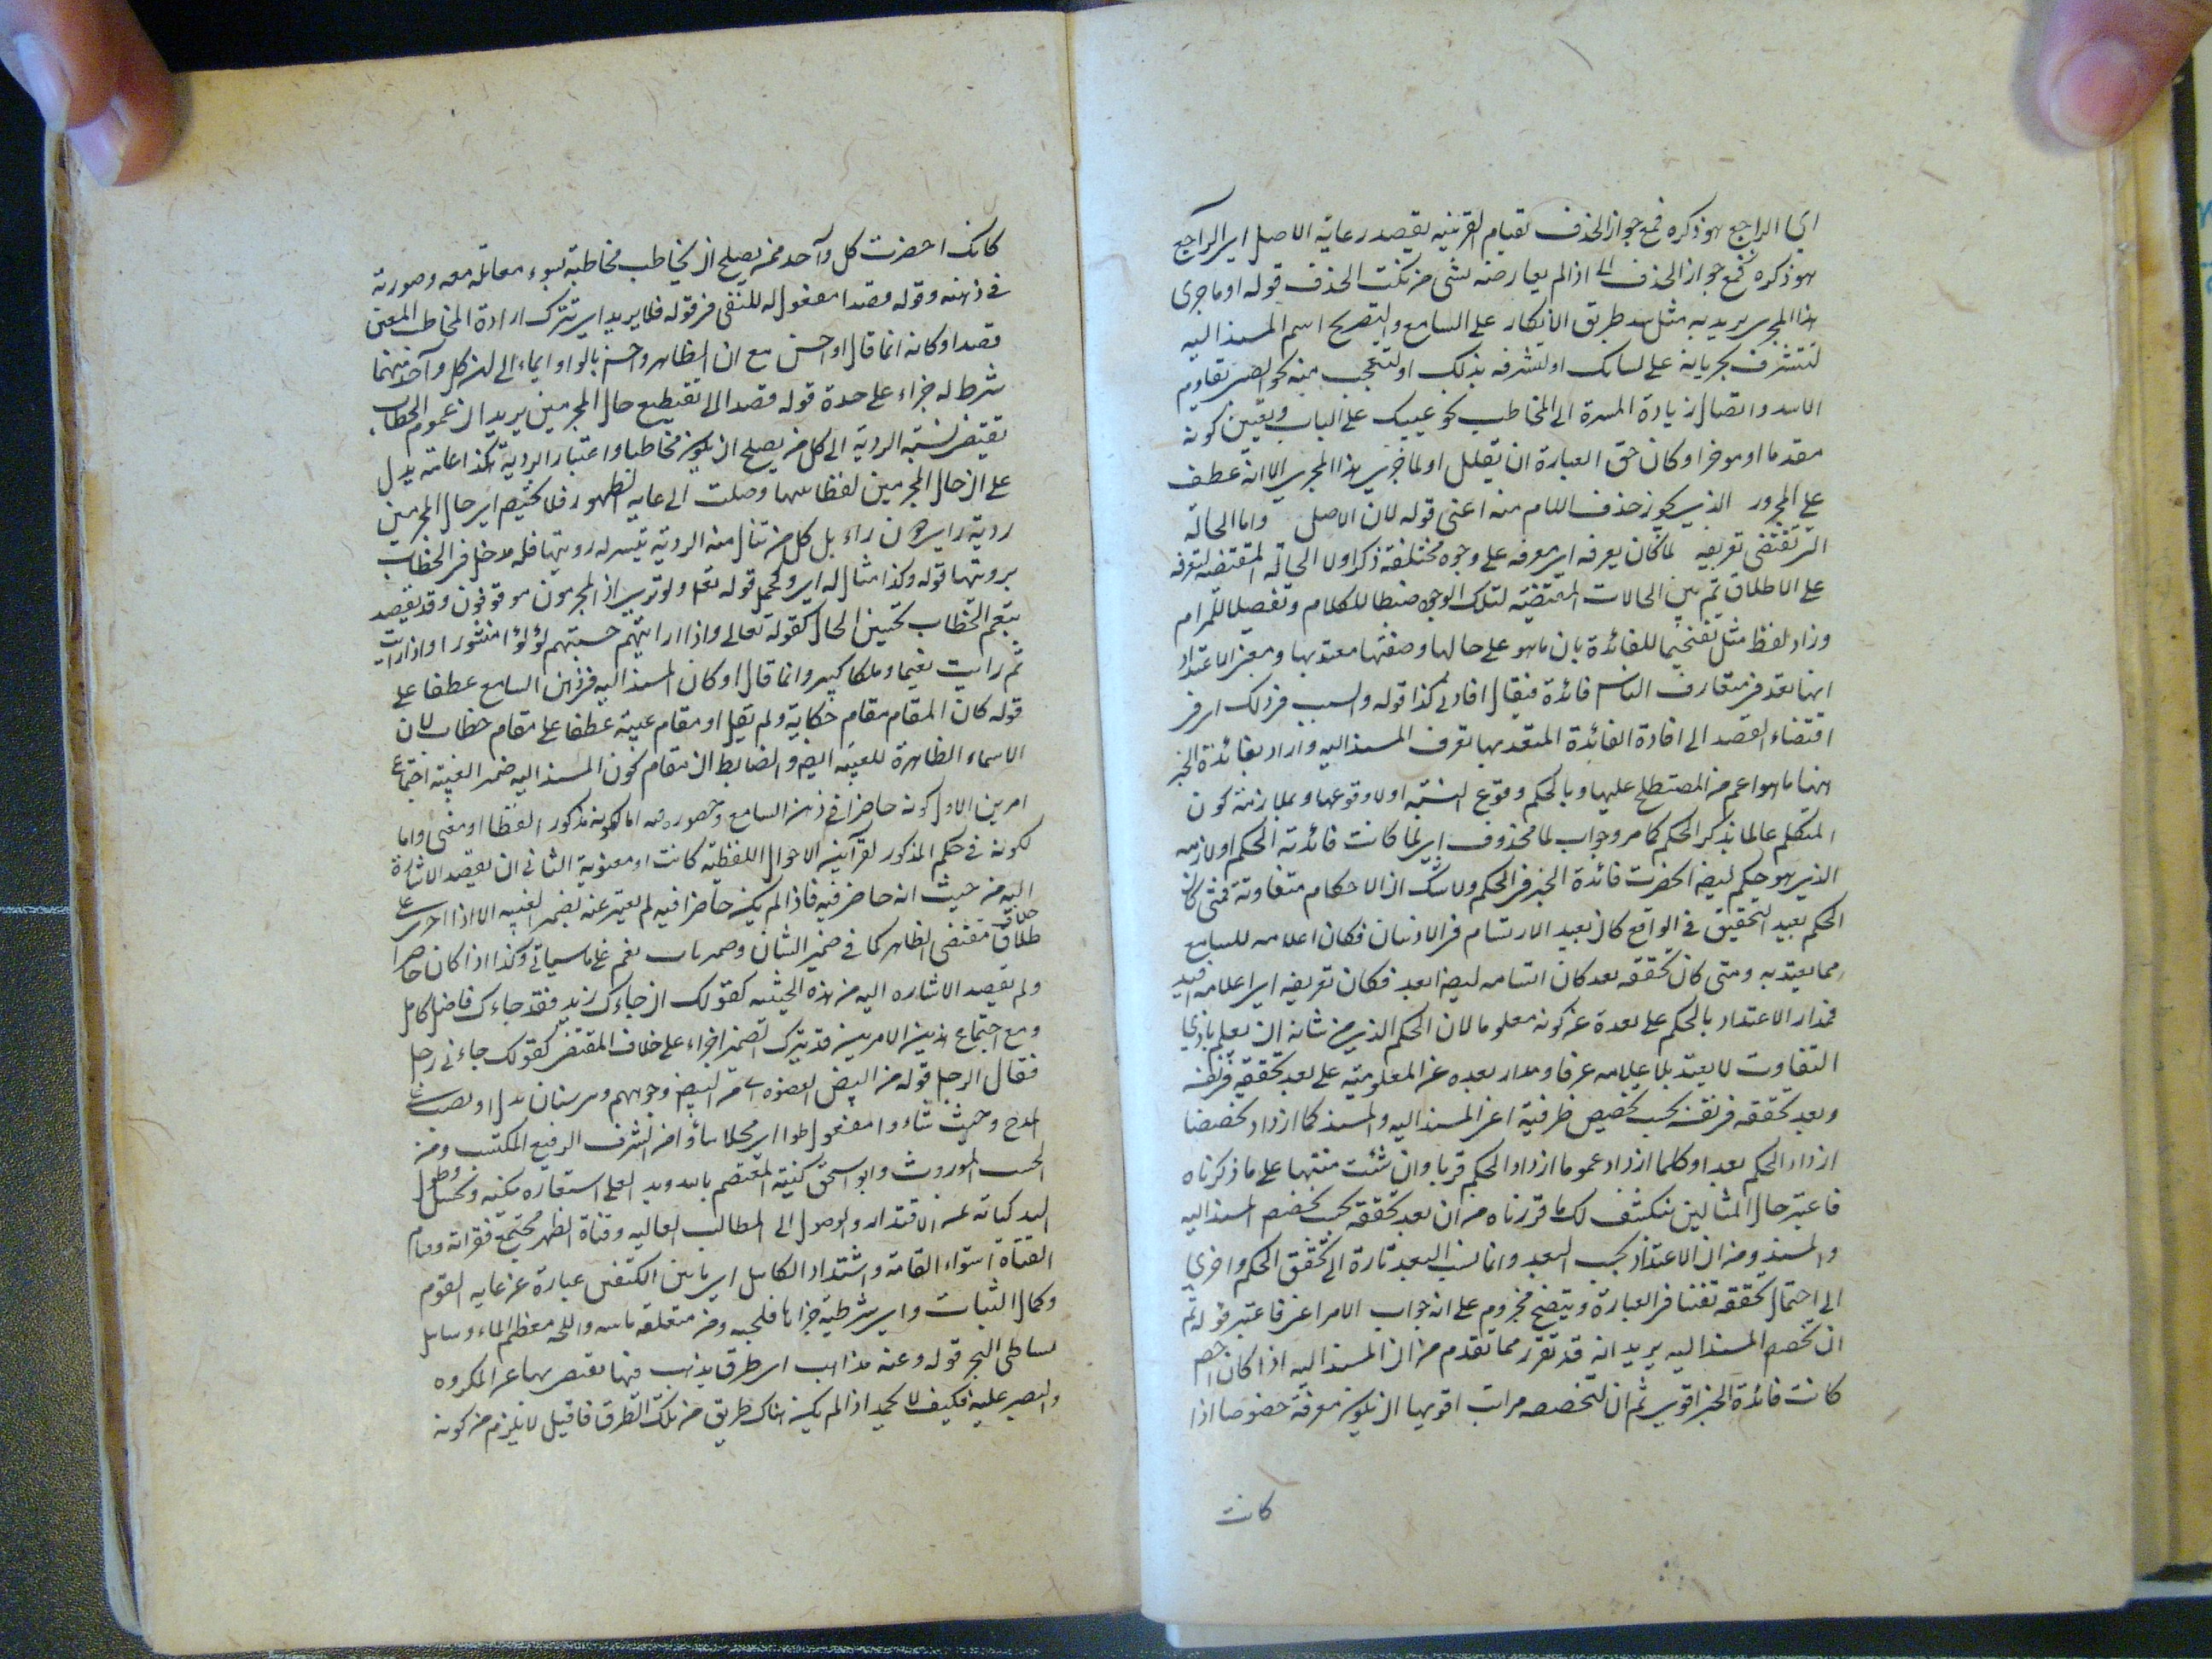 اى الراجح هو ذكره فمع جواز الحذف لقيام القرينة يقصد رعاية الاصل اى الراجح
هو ذكره فمع جواز الحذف اذا لم يعارضه شى من نكت الحذف قوله او ما جرى
هذا المجرى يريد به مثل سد طريق الانكار على السامع والتصريح باسم المسند اليه
لتتشرف بجريانه على لسانك او لتشرفه بذلك او لتعجب منه نحو الصبى تقاوم
الاسد وايصال زيادة المسرة الى المخاطب نحو حبيبك على الباب وتعين كونه
مقدما او موخرا وكان حق العبارة ان يقال او لما جرى هذا المجرى الا انه عطف
على المجرور الذى يجوز حذف اللام منه اعنى قوله لان الاصل واما الحالة
التى تقتضى تعريفه لما كان يعرفه اى معرفه على وجوه مختلفة ذكر اولا الحالة المقتضية لتعرفه
على الاطلاق ثم بين الحالات المقتضية لتلك الوجوه ضبطا للكلام وتفصيلا للمرام
وزاد لفظ مثل تفخيما للفائدة بان ما هو على حالها وصفتها معتد بها ومعنى الاعتداد
انها تعد فى متعارف الناس فائدة فيقال افادنى كذا قوله والسبب فى ذلك اى فى
اقتضاء القصد الى افادة الفائدة المعتد بها تعرف المسند اليه واراد بفائدة الخبر
ههنا ما هو اعم من المصطلح عليها وبالحكم وقوع النسبة او لا وقوعها وبملازمته كون
المتكلم عالما بذلك الحكم كما مر وجواب لما محذوف اى لما كانت فائدته الحكم او لازمه
الذى هو حكم ايضا انحصرت فائدة الخبر فى الحكم ولا شك ان الاحكام متفاوتة فمتى كان
الحكم بعيد التحقيق فى الواقع كان بعيد الارتسام فى الاذهان فكان اعلامه للسامع
مما يعتد به ومتى كان تحققه بعد كان ارتسامه ايضا ابعد فكان تعريفه اى اعلامه افيد
فمدار الاعتداد بالحكم على بعده عن كونه معلوما لان الحكم الذى من شانه ان يعلم بادنى
التفاوت لا يعتد باعلامه عرفا ومدار بعده عن المعلومية على بعد تحققه فى نفسه
وبعد تحققه فى نفسه بحسب تخصيص طرفيه اعنى المسند اليه والمسند كلما ازداد تخصصا
ازداد الحكم بعدا وكلما ازداد عموما ازداد الحكم قربا وان شئت منبها على ما ذكرناه
فاعتبر حال المثالين ينكشف لك ما قررناه من ان بعد تحققه بحسب تخصص المسند اليه
والمسند ومن ان الاعتداد بحسب البعد وانما نسب البعد تارة الى تحقق الحكم واخرى
الى احتمال تحققه تفننا فى العبارة ويتضح مجزوم على انه جواب الامر اعنى فاعتبر قوله ثم
ان تخصص المسند اليه يريد انه قد تقرر مما تقدم من ان المسند اليه اذا كان اخص
كانت فائدة الخبر اقوى ثم ان لتخصصه مراتب اقويها ان يكون معرفة خصوصا اذا
كانت
كانك احضرت كل واحد ممن يصلح ان يخاطب مخاطبة بسوء معاملة معه وصورته
فى ذهنه وقوله قصدا مفعول له للنفى فى قوله فلا يريد اى تترك ارادة المخاطب المعين
قصدا وكانه انما قال او احسن مع ان الظاهر واحسن بالواو ايماء الى ان كل واحد منهما
شرط له جزاء على حدة قوله قصدا الى تفظيع حال المجرمين يريد ان عموم الخطاب
يقتضى نسبة الروية الى كل من يصلح ان يكون مخاطبا واعتبار الروية هكذا عامة يدل
على ان حال المجرمين لفظاعتها وصلت الى غاية الظهور فلا يختص اى حال المجرمين
روية راى دون راء بل كل من تتاتى منه الروية تيسر له رويتها فله مدخل فى الخطاب
برويتها قوله وكذا امثاله اى ويحمل قوله تعالى ولو ترى اذ المجرمون موقوفون وقد يقصد
بتعميم الخطاب تحسين الحال كقوله تعالى واذا رايتهم حسبتهم لؤلؤا منثورا واذا رايت
ثم رايت نعيما وملكا كبيرا وانما قال او كان المسند اليه فى ذهن السامع عطفا على
قوله كان المقام مقام حكاية ولم يقل او مقام غيبة عطفا على مقام خطاب لان
الاسماء الظاهرة للغيبة ايضا والضابط ان مقام كون المسند اليه ضمير الغيبة اجتماع
امرين الاول كونه حاضرا فى ذهن السامع وحضوره فيه اما لكونه مذكورا لفظا او معنى واما
لكونه فى حكم المذكور لقرآئن الاحوال اللفظية كانت او معنوية الثانى ان يقصد الاشارة
اليه من حيث انه حاضر فيه فاذا لم يكن حاضرا فيه لم يعبر عنه بضمير الغيبة الا اذا اجرى على
خلاف مقتضى الظاهر كما فى ضمير الشان وضمير باب نعم على ما سياتى وكذا اذا كان حاضرا
ولم يقصد الاشارة اليه من هذه الحيثية كقولك ان جاءك زيد فقد جاءك فاضل كامل
ومع اجتماع هذين الامرين قد يترك الضمير اجراء على خلاف المقتضى كقولك جاءنى رجل
فقال الرجل قوله من البيض الوجوه اى من البيض وجوههم وبنى سنان بدل او نصب على
المدح وحيث شاءوا مفعول حلوا اى محلا شاءوا من الشرف الرفيع المكتسب ومن
الحسب الموروث وابو اسحق كنية المعتصم بالله ويد العلى استعارة مكنية وتخييل وطول
اليد كناية عن الاقتدار والوصول الى المطالب العالية وقناة الظهر مجتمع فقراته وقيام
القناة استواء القامة واشتداد الكاهل اى ما بين الكتفين عبارة عن غاية القوم
وكمال الثبات واى شرطية جزاؤها فلجته ومن متعلقة بها واللجة معظم الماء وساحل
شاطى البحر قوله وعنه مذاهب اى طرق يذهب فيها يقتصر بها عن المكروه
والصبر عليه فكيف لا يحمد اذا لم يكن هناك طريق من تلك الطرق فما قيل لا يلزم من كونه